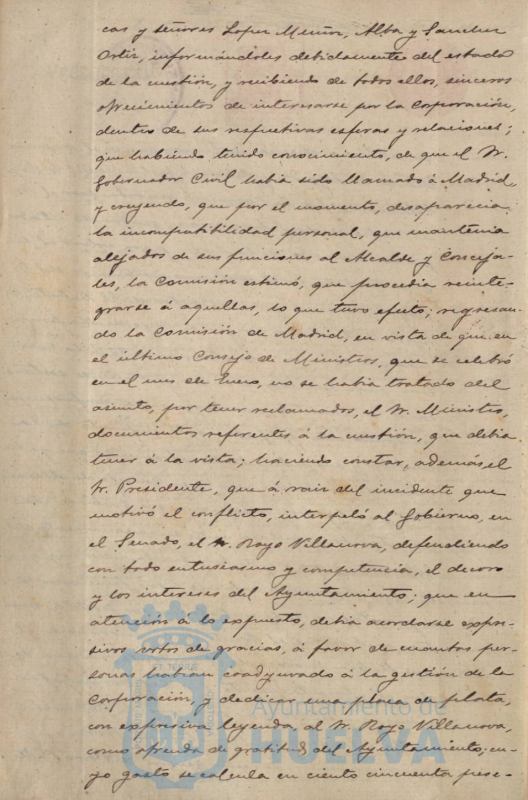 cas y señores Lopez Muñoz, Alba y Sanchez
Ortiz, informándoles debidamente del estado
de la cuestión, y recibiendo de todos ellos, sinceros
ofrecimientos de interesarse por la Corporación,
dentro de sus respectivas esferas y relaciones;
que habiendo tenido conocimiento, de que el Sr.
Gobernador Civil habia sido llamado á Madrid,
y creyendo, que por el momento, desaparecia
la incompatibilidad personal, que mantenia
alejados de sus funciones al Alcalde y Conceja-
les, la Comisión estimó, que procedia reinte-
grarse á aquellas, lo que tuvo efecto; regresan-
do la Comisión de Madrid, en vista de que en
el último Consejo de Ministros, que se celebró
en el mes de Enero, no se habia tratado del
asunto, por tener reclamados, el Sr. Ministro,
documentos referentes á la cuestión, que debia
tener á la vista; haciendo constar, además, el
Sr. Presidente, que á raiz del incidente que
motivó el conflicto, interpeló al Gobierno, en
el Senado, el Sr. Royo Villanova, defendiendo
con todo entusiasmo y competencia, el decoro
y los intereses del Ayuntamiento; que en
atención á lo expuesto, debia acordarse expre-
sivos votos de gracias, á favor de cuantas per-
sonas habian coadyuvado á la gestión de la
Corporación, y dedicar una placa de plata,
con expresiva leyenda, al Sr. Royo Villanova,
como ofrenda de gratitud, del Ayuntamiento; cu-
yo gasto se calcula en ciento cincuenta pese-
Ayuntamiento de
HUELVA